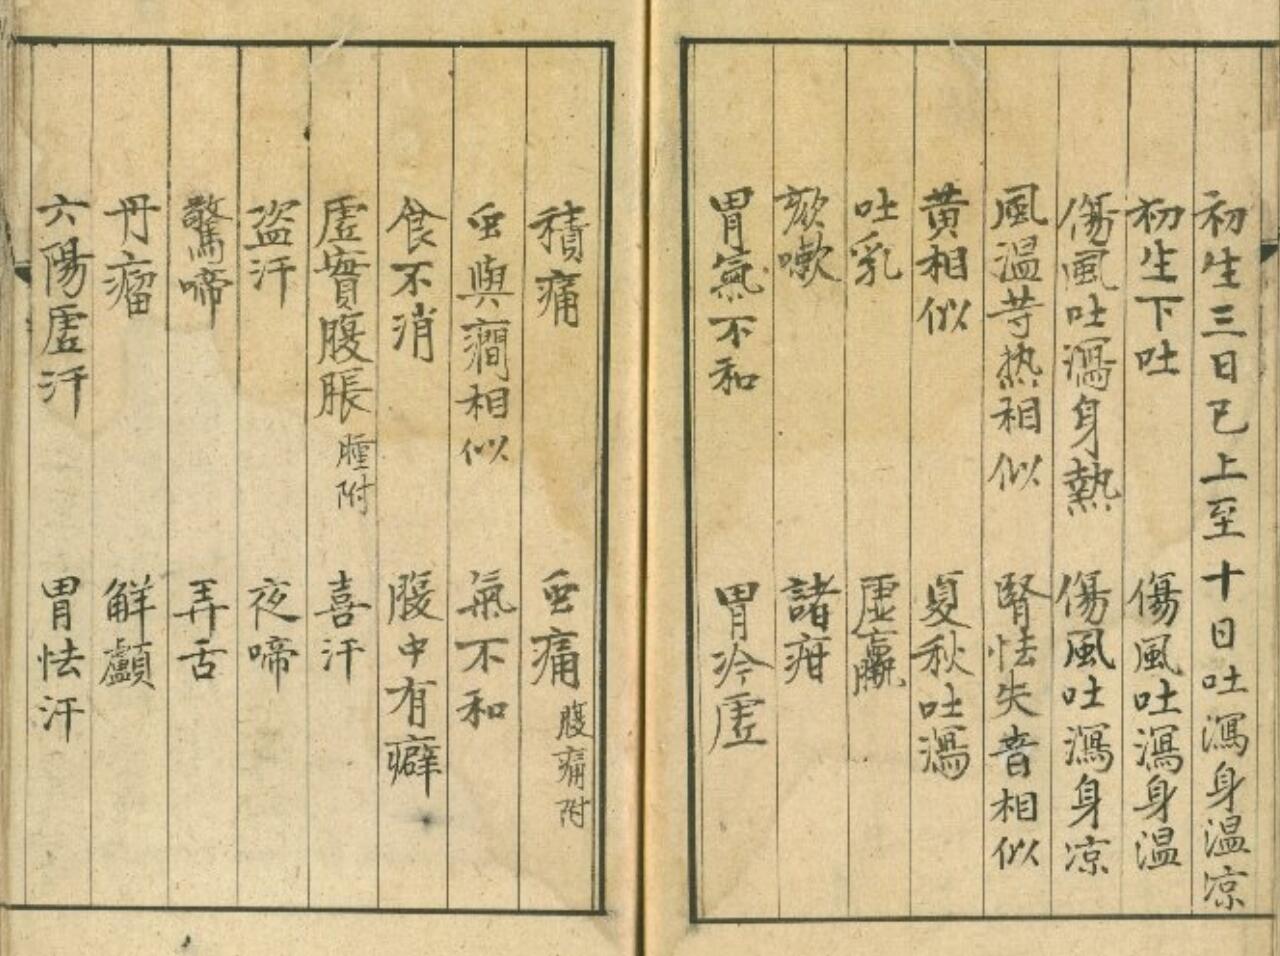 初生三日已上至十日吐瀉身温凉
初生下吐　傷風吐瀉身温
傷風吐瀉身熱　傷風吐瀉身凉
風温苛热相似　腎怯失音相似
黄相似　夏秋吐瀉
吐乳　虚羸
欬嗽　諸疳
胃氣不和　胃冷虚
積痛　虫痛腹痛附
虫與癇相似　氣不和
食不消　腹中有癖
虚實腹脹腫附　喜汗
盗汗　夜啼
驚啼　弄舌
丹瘤　解顱
六陽虚汗　胃怯汗